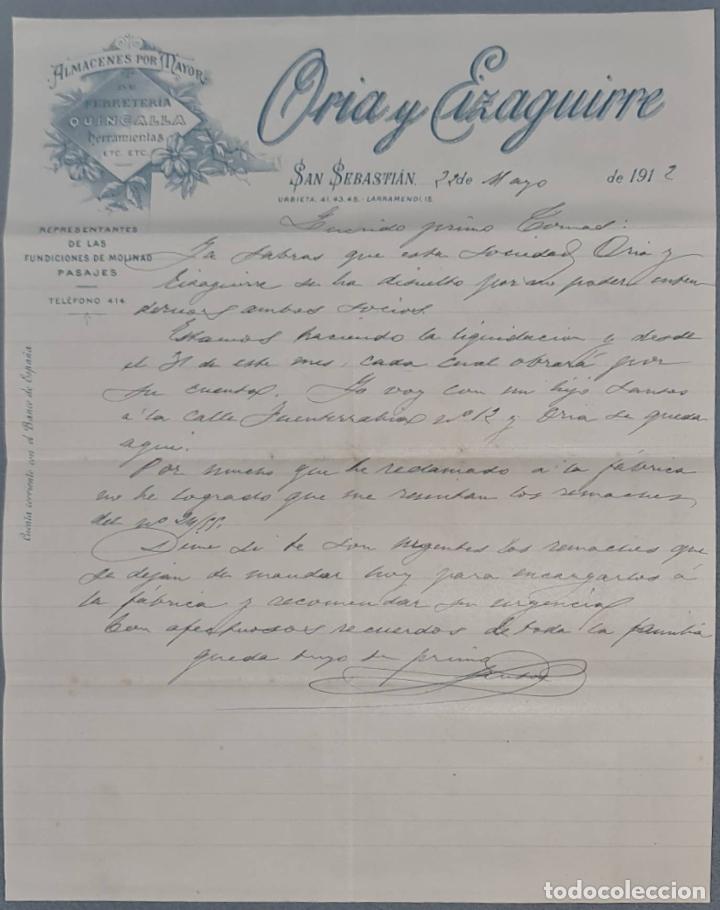 ALMACENES POR MAYOR
DE
FERRETERÍA
QUINCALLA
herramientas
ETC. ETC.
Oria y Eizaguirre
SAN SEBASTIÁN, 22 de Mayo de 1912
URBIETA, 41, 43, 45. - LARRAMENDI, 15.
REPRESENTANTES
DE LAS
FUNDICIONES DE MOLINAO
PASAJES
TELÉFONO 414
Cuenta corriente con el Banco de España
Querido primo Tomas:
Ya sabras que esta sociedad Oria y
Eizaguirre se ha disuelto por no poder enten
dernos ambos socios.
Estamos haciendo la liquidacion y desde
el 31 de este mes, cada cual obrará por
su cuenta. Yo voy con mi hijo
á la calle Fuenterrabia nº 12 y Oria se queda
aqui.
Por mucho que he reclamado á la fábrica
no he logrado que me remitan los remaches
del nº
Dime si te son urgentes los remaches que
se dejan de mandar hoy para encargarlos á
la fábrica y recomendar su urgencia
Con afectuosos recuerdos de toda la familia
queda tuyo tu primo
todocoleccion
todocoleccion.net